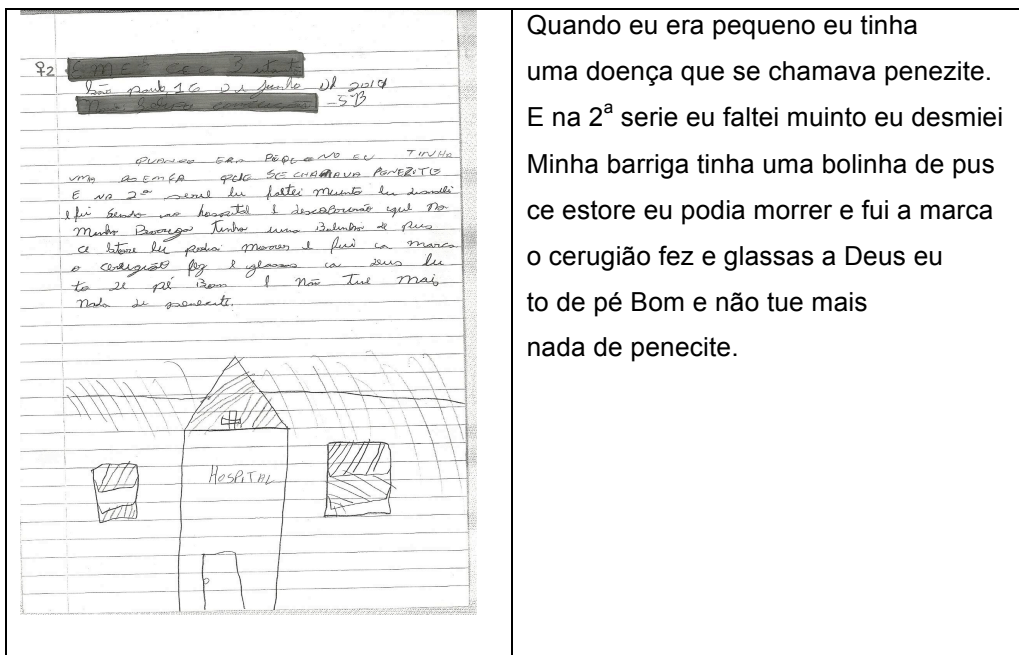 ♀2
São Paulo, 16 de junho de 2010
-5ªB
QUANDO ERA PEQUENO EU TINHA
UMA DOEMÇA QUE SE CHAMAVA PENEZITE
E NA 2ª serie eu faltei muinto eu desmiei
e fui no hospital e que na
minha Barriga tinha uma Bolinha de Pus
ce estore eu podia morrer e fui a marca
o cerugião fez e glassas a Deus eu
to de pé Bom e não tue mais
nada de penecite.
HOSPITAL
Quando eu era pequeno eu tinha
uma doença que se chamava penezite.
E na 2ª serie eu faltei muinto eu desmiei
Minha barriga tinha uma bolinha de pus
ce estore eu podia morrer e fui a marca
o cerugião fez e glassas a Deus eu
to de pé Bom e não tue mais
nada de penecite.